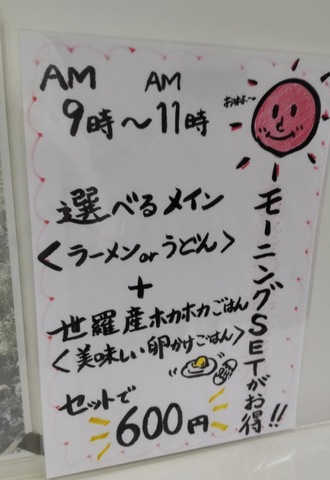 AM AM
9時〜11時
おはよ〜
モーニングSETがお得!!
選べるメイン
<ラーメンorうどん>
+
世羅産ホカホカごはん
<美味しい卵かけごはん>
セットで
600円